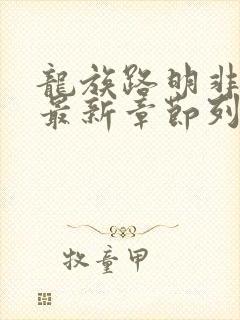 龍族路明非
最新章節列
牧童甲